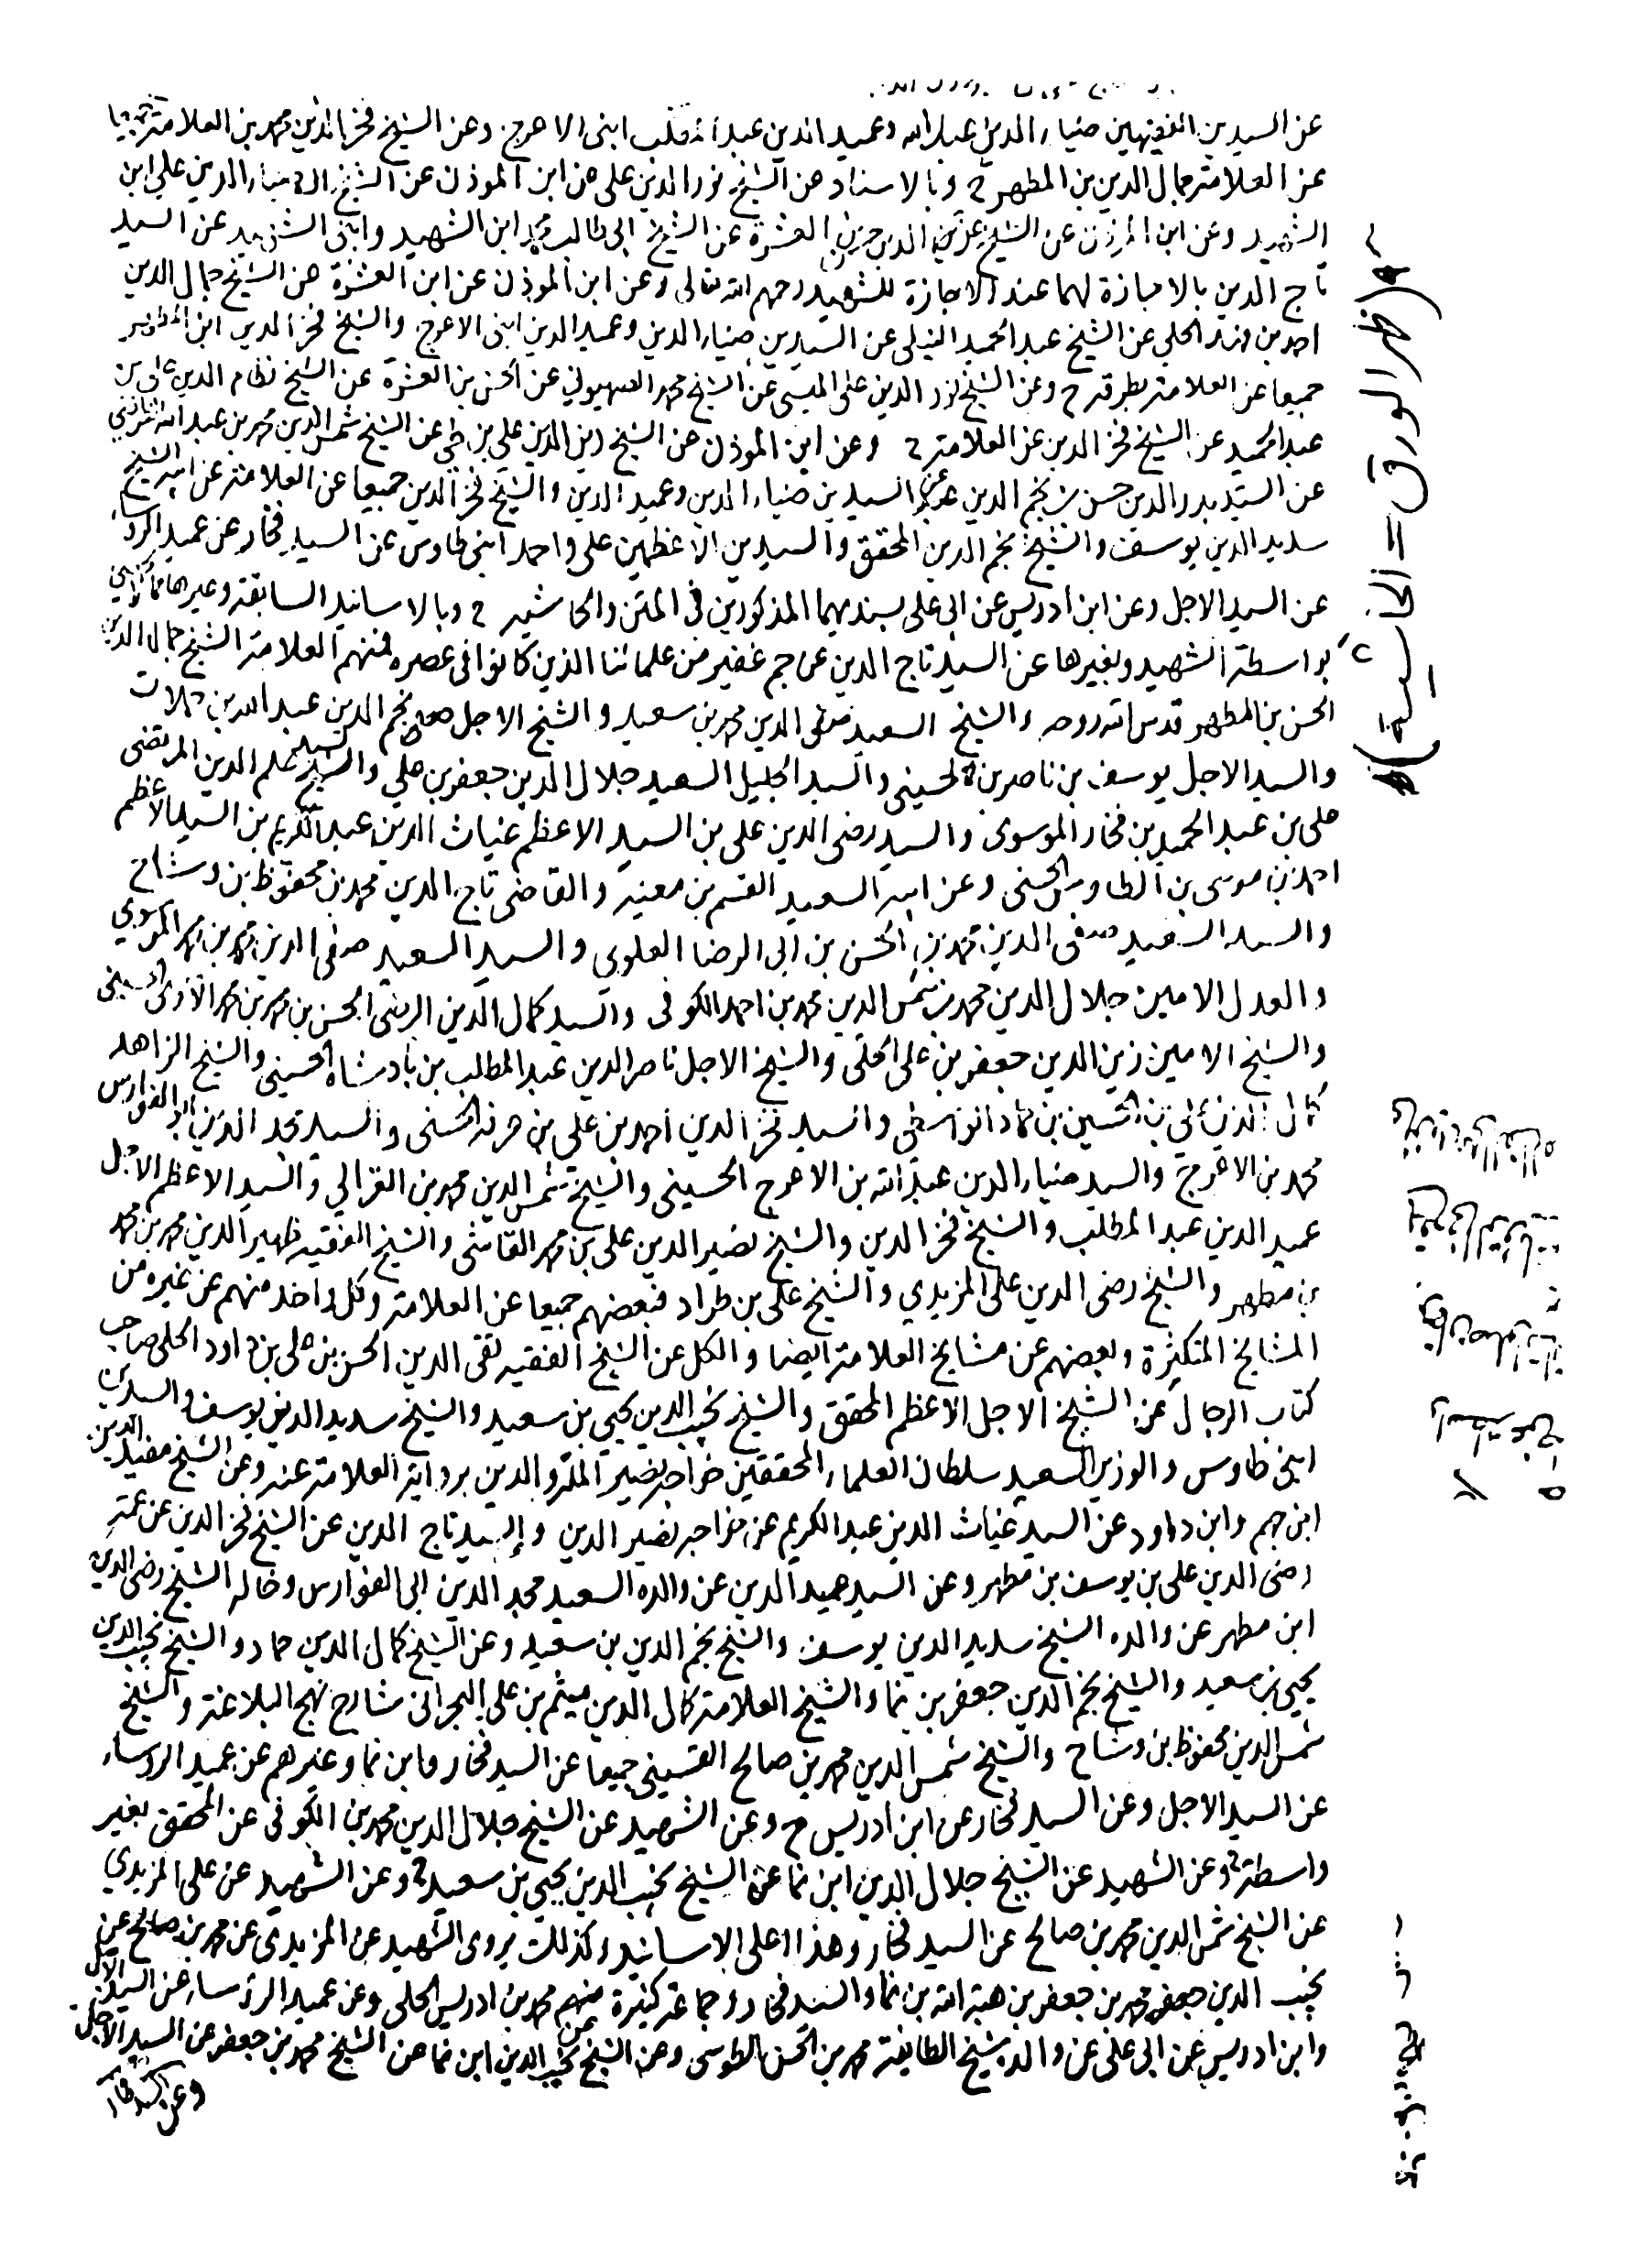 عن السيدين الفقيهين ضياء الدين عبد الله وعميد الدين عبد المطلب ابنى الاعرج وعن الشيخ فخر الدين محمد بن العلامة جميعا
عن العلامة جمال الدين بن المطهر ح وبالاسناد عن الشيخ نور الدين على عن ابن الموذن عن الشيخ ضياء الدين على ابن
الشهيد وعن ابن الموذن عن الشيخ عز الدين حسن بن العشرة عن الشيخ ابى طالب محمد ابن الشهيد وابنى الشهيد عن السيد
تاج الدين بالاجازة لهما عند الاجازة للشهيد رحمهم الله تعالى وعن ابن الموذن عن ابن العشرة عن الشيخ جمال الدين
احمد بن فهد الحلى عن الشيخ عبد الحميد النيلى عن السيدين ضياء الدين وعميد الدين ابنى الاعرج والشيخ فخر الدين ابن المطهر
جميعا عن العلامة بطرقه ح وعن الشيخ نور الدين على الميسى عن الشيخ محمد الصهيونى عن الحسن بن العشرة عن الشيخ نظام الدين على بن
عبد الحميد عن الشيخ فخر الدين عن العلامة ح وعن ابن الموذن عن الشيخ زين الدين على بن طى عن الشيخ شمس الدين محمد بن عبد الله
عن السيد بدر الدين حسن بن نجم الدين عن السيدين ضياء الدين وعميد الدين والشيخ فخر الدين جميعا عن العلامة عن ابيه الشيخ
سديد الدين يوسف والشيخ نجم الدين المحقق والسيدين الاعظمين على واحمد ابنى طاوس عن السيد فخار عن عميد الرؤساء
عن السيد الاجل وعن ابن ادريس عن ابى على بسنديهما المذكورين فى المتن والحاشيه ح وبالاسانيد السابقة وغيرها
بواسطة الشهيد وبغيرها عن السيد تاج الدين عن جم غفير من علمائنا الذين كانوا فى عصره فمنهم العلامة الشيخ جمال الدين
الحسن بن المطهر قدس الله روحه والشيخ السعيد صفى الدين محمد بن سعيد والشيخ الاجل نجم الدين عبد الله بن حملات
والسيد الاجل يوسف بن ناصر بن الحسينى والسيد الجليل السعيد جلال الدين جعفر بن على والسيد علم الدين المرتضى
على بن عبد الحميد بن فخار الموسوى والسيد رضى الدين على بن السيد الاعظم غياث الدين عبد الكريم بن السيد الاعظم
احمد بن موسى بن الطاوس الحسنى وعن ابيه السعيد القسم بن معيه والقاضى تاج الدين محمد بن محفوظ بن وشاح
والسيد السعيد صفى الدين محمد بن الحسن بن ابى الرضا العلوى والسيد السعيد صفى الدين محمد بن محمد الموسوى
والعدل الامين جلال الدين محمد بن شمس الدين محمد بن احمد الكوفى والسيد كمال الدين الرضى الحسن بن محمد بن محمد الآوى الحسينى
والشيخ الامين زين الدين جعفر بن على الحلى والشيخ الاجل ناصر الدين عبد المطلب بن بادشاه الحسينى والشيخ الزاهد
كمال الدين على بن الحسين بن حماد الواسطى والسيد فخر الدين احمد بن على بن عرفه الحسنى والسيد مجد الدين ابو الفوارس
محمد بن الاعرج والسيد ضياء الدين عبد الله بن الاعرج الحسينى والشيخ شمس الدين محمد بن الغزالى والسيد الاعظم الاجل
عميد الدين عبد المطلب والشيخ فخر الدين والشيخ نصير الدين على بن محمد القاشى والشيخ الفقيه ظهير الدين محمد بن محمد
بن مطهر والشيخ رضى الدين على المزيدى والشيخ على بن طراد فبعضهم جميعا عن العلامة وكل واحد منهم عن غيره من
المشايخ المتكثرة وبعضهم عن مشايخ العلامة ايضا والكل عن الشيخ الفقيه تقى الدين الحسن بن على بن داود الحلى صاحب
كتاب الرجال عن الشيخ الاجل الاعظم المحقق والشيخ نجيب الدين يحيى بن سعيد والشيخ سديد الدين يوسف والسيدين
ابنى طاوس والوزير السعيد سلطان العلماء المحققين خواجه نصير الملة والدين برواية العلامة عنه وعن الشيخ مفيد الدين
ابن جهم وابن داود عن السيد غياث الدين عبد الكريم عن خواجه نصير الدين والسيد تاج الدين عن الشيخ فخر الدين عن عمه
رضى الدين على بن يوسف بن مطهر وعن السيد عميد الدين عن والده السعيد مجد الدين ابى الفوارس وخاله الشيخ رضى الدين
ابن مطهر عن والده الشيخ سديد الدين يوسف والشيخ نجم الدين بن سعيد وعن الشيخ كمال الدين حماد والشيخ نجيب الدين
يحيى بن سعيد والشيخ نجم الدين جعفر بن نما والشيخ العلامة كمال الدين ميثم بن على البحرانى شارح نهج البلاغة والشيخ
شمس الدين محفوظ بن وشاح والشيخ شمس الدين محمد بن صالح القسينى جميعا عن السيد فخار وابن نما وغيرهم عن عميد الرؤساء
عن السيد الاجل وعن السيد فخار عن ابن ادريس ح وعن الشهيد عن الشيخ جلال الدين محمد بن الكوفى عن المحقق بغير
واسطة ح وعن الشهيد عن الشيخ جلال الدين ابن نما عن الشيخ نجيب الدين يحيى بن سعيد ح وعن الشهيد عن على المزيدي
عن الشيخ شمس الدين محمد بن صالح عن السيد فخار وهذا اعلى الاسانيد وكذلك يروى الشهيد عن المزيدى عن محمد بن صالح عن
نجيب الدين جعفر محمد بن جعفر بن هبة الله بن نما والسيد فخار وجماعة كثيرة منهم محمد بن ادريس الحلى وعن عميد الرؤساء عن السيد الاجل
وابن ادريس عن ابى على عن والده شيخ الطايفة محمد بن الحسن الطوسى وعن الشيخ نجيب الدين ابن نما عن الشيخ محمد بن جعفر عن السيد الاجل
وعن السيد فخار
(ظهر الورق = الحاشية)